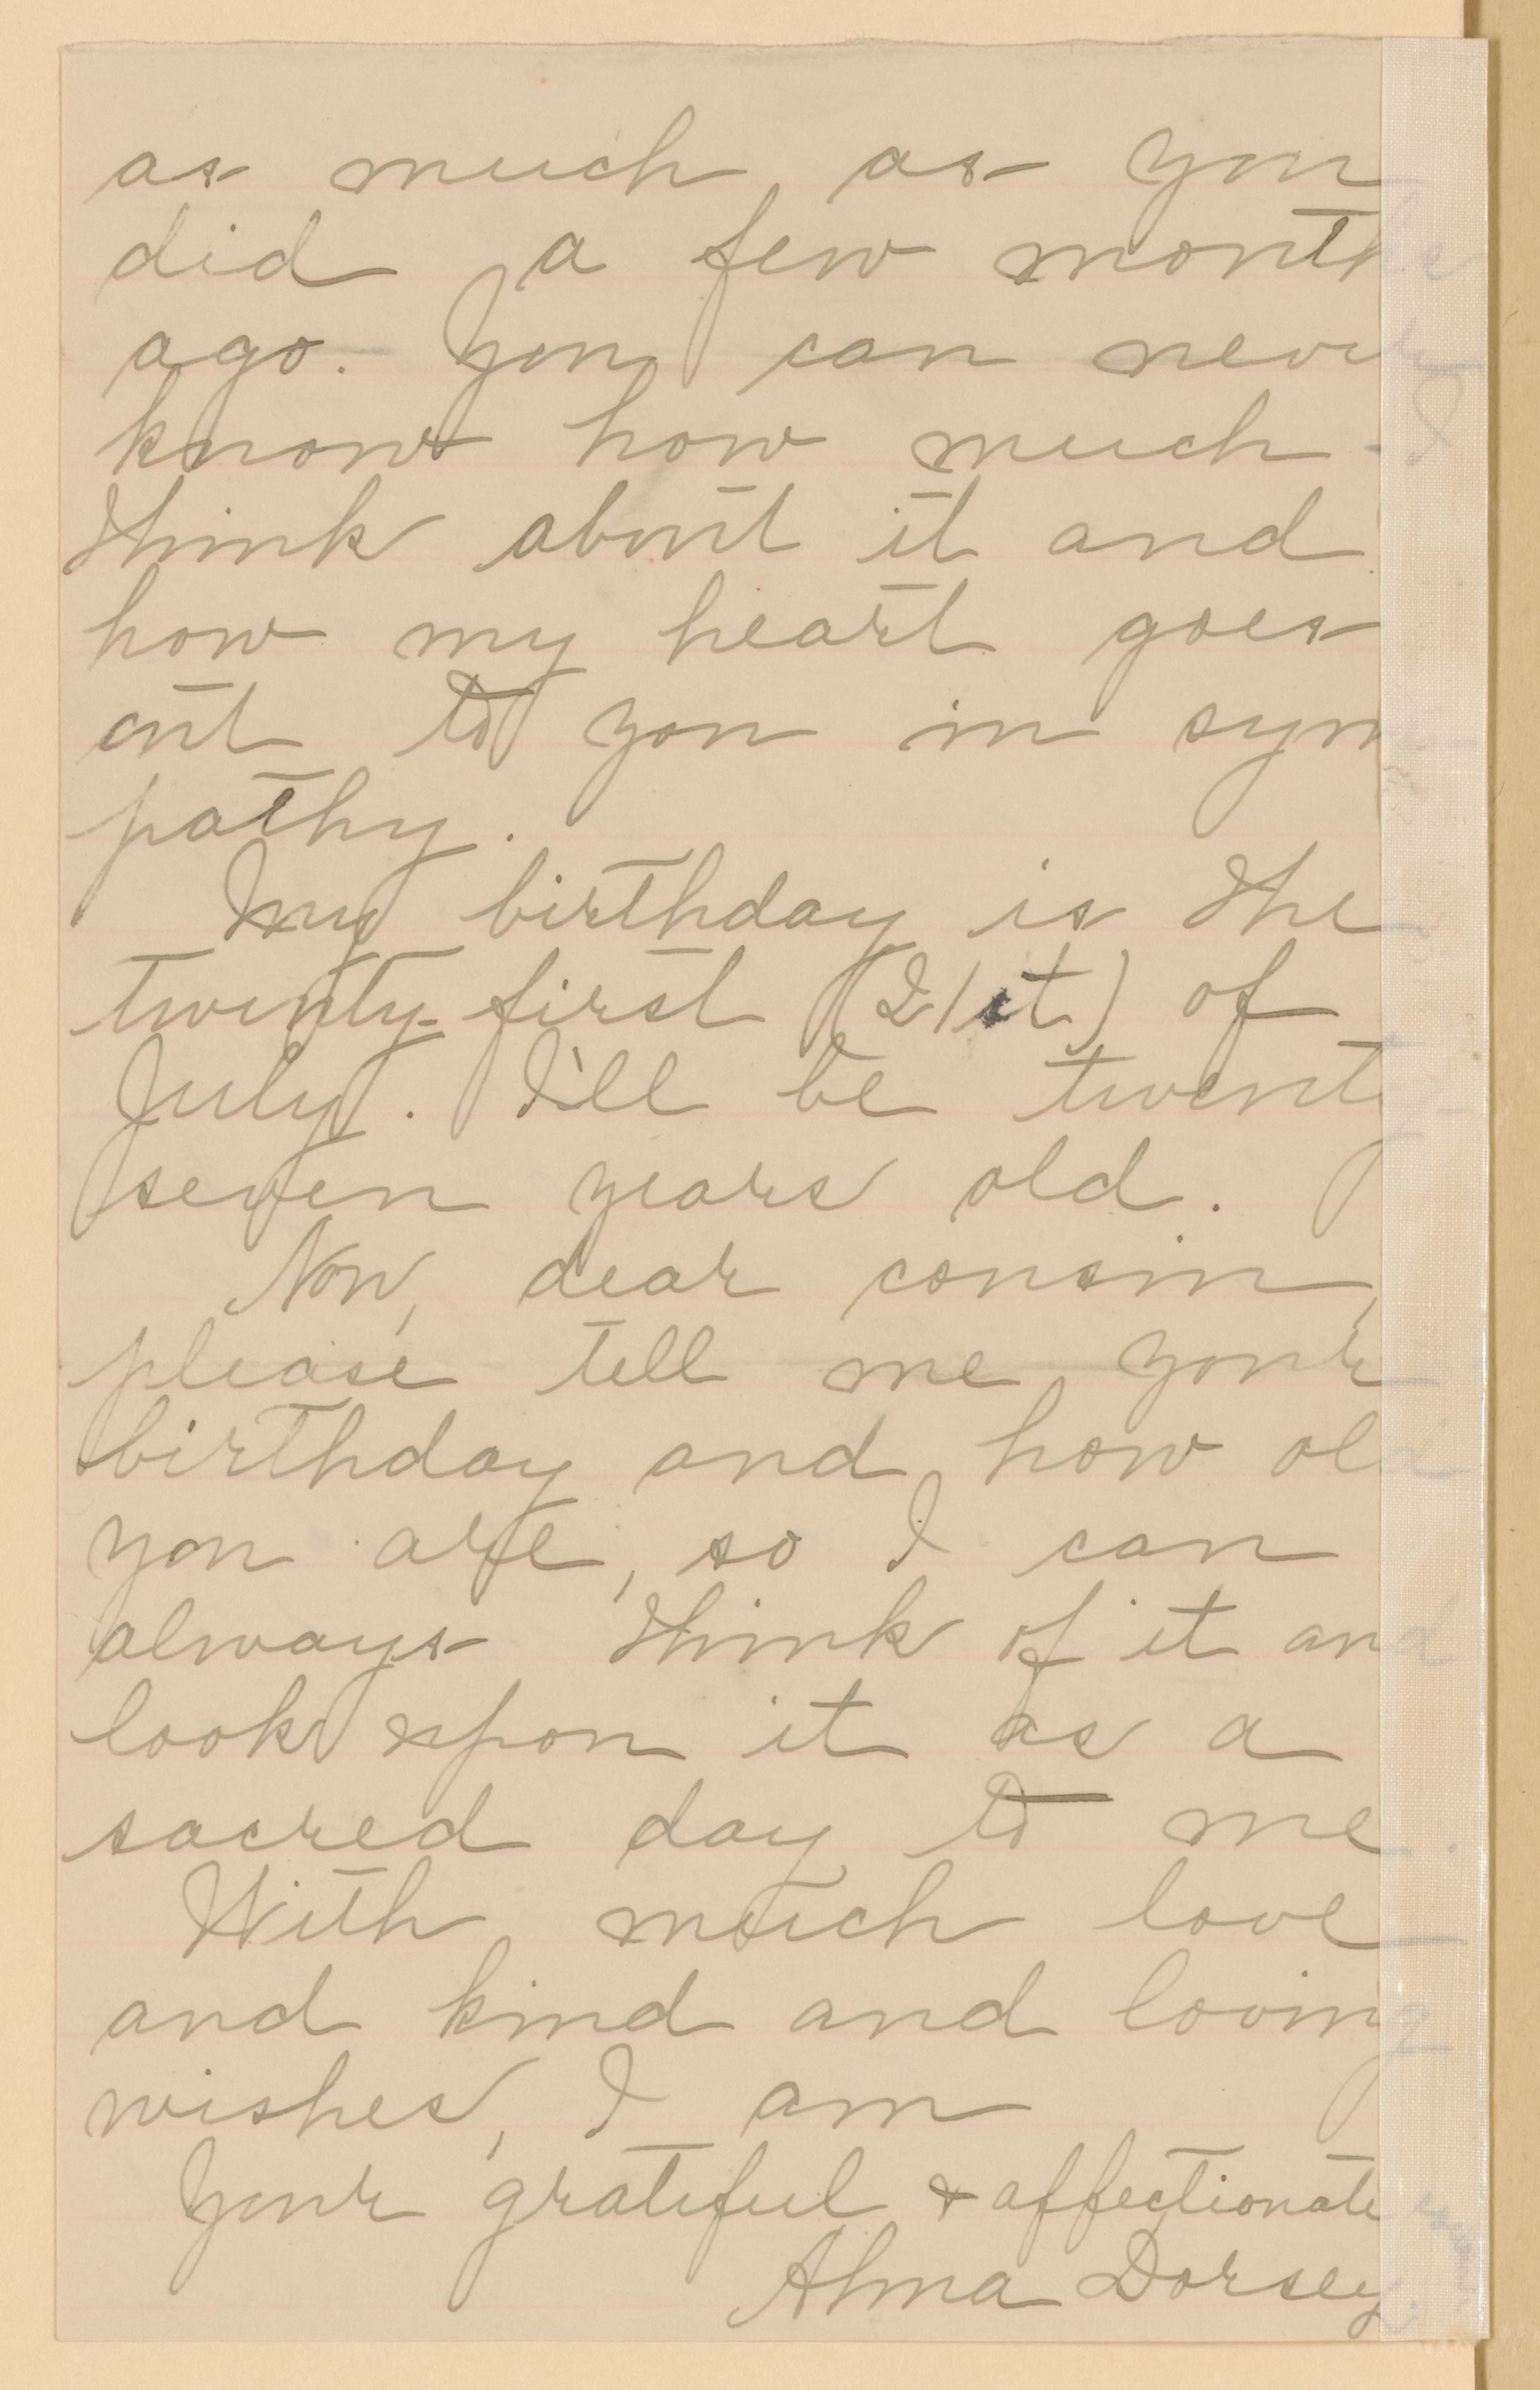 as much as you
did a few months
ago. You can never
know how much I
think about it and
how my heart goes
out to you in sym
pathy.
My birthday is the
twenty-first (21st) of
July. I'll be twenty
seven years old.
Now, dear cousin,
please tell me your
birthday and how old
you are, so I can
always think of it and
look upon it as a
sacred day to me.
With much love
and kind and loving
wishes, I am
Your grateful & affectionate
Alma Dorsey